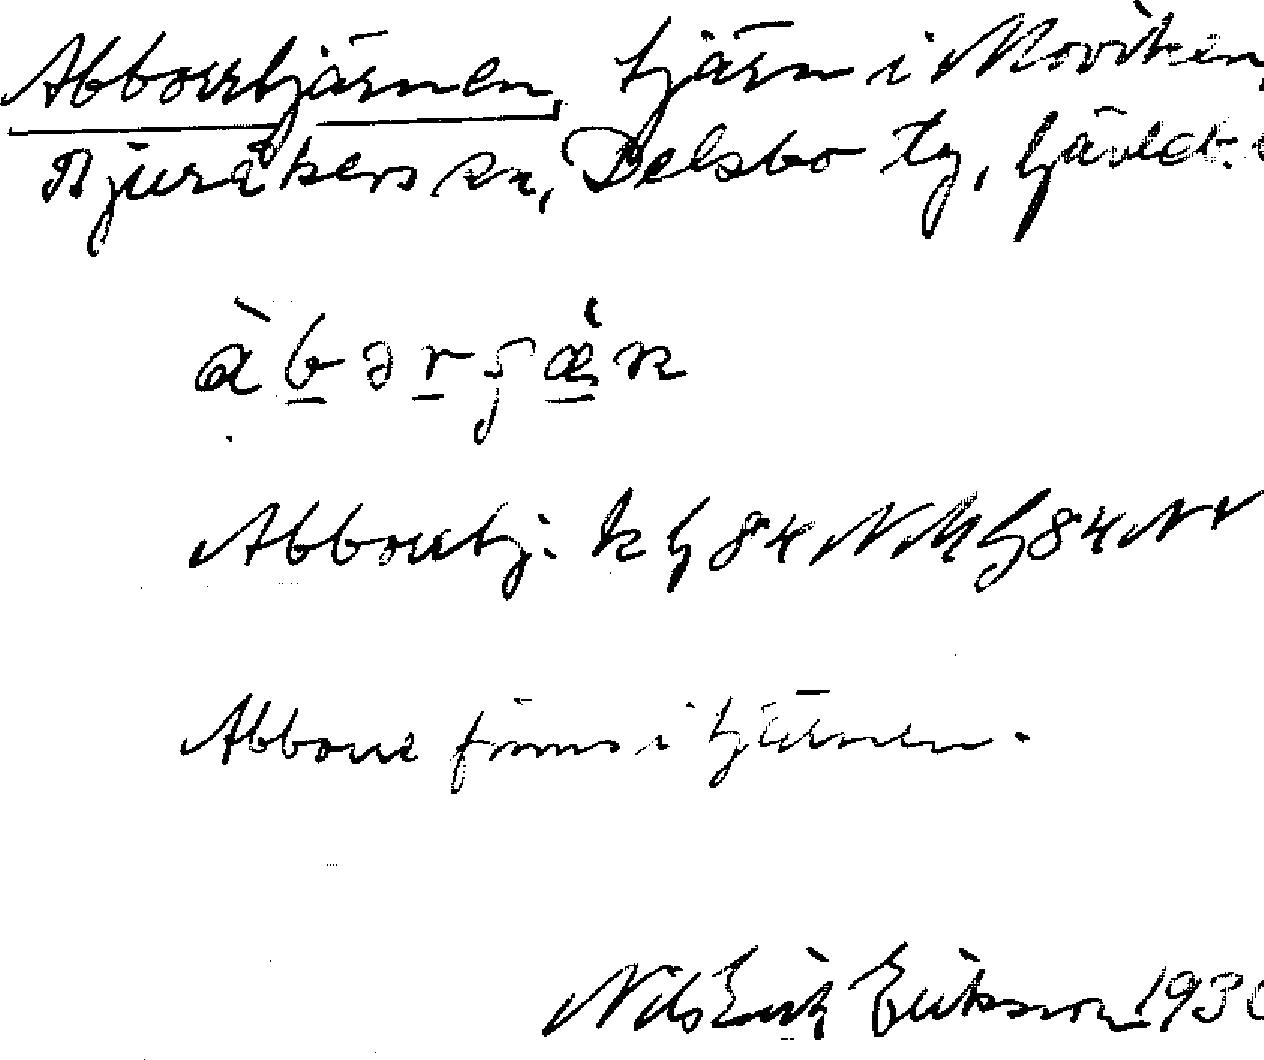 Abborrtjärnen, tjärn i Moviken,
Bjuråkers sn, Delsbo tg, Gävleb.
àbərʂæ̀n
Abborrtj. k G 84 NV
Abborre finns i tjärnen.
Nils Erik Eriksson 193